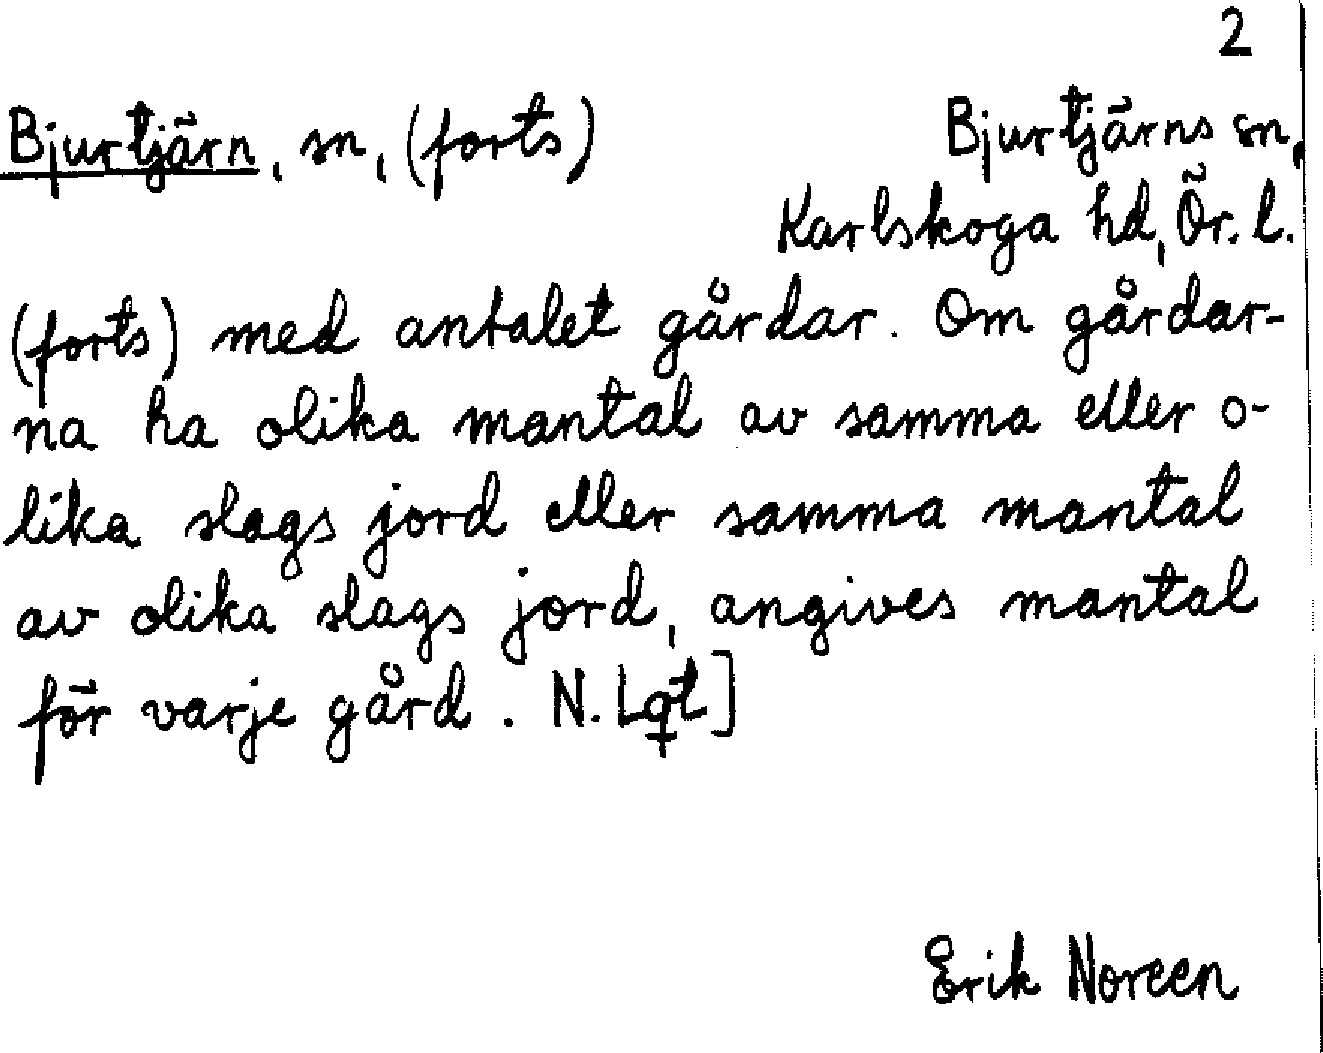 2
Bjurtjärn, sn, (forts) Bjurtjärns sn,
Karlskoga hd, Ör. l.
(forts) med antalet gårdar. Om gårdar-
na ha olika mantal av samma eller o-
lika slags jord eller samma mantal
av olika slags jord, angives mantal
för varje gård. N. Lqt]
Erik Noreen